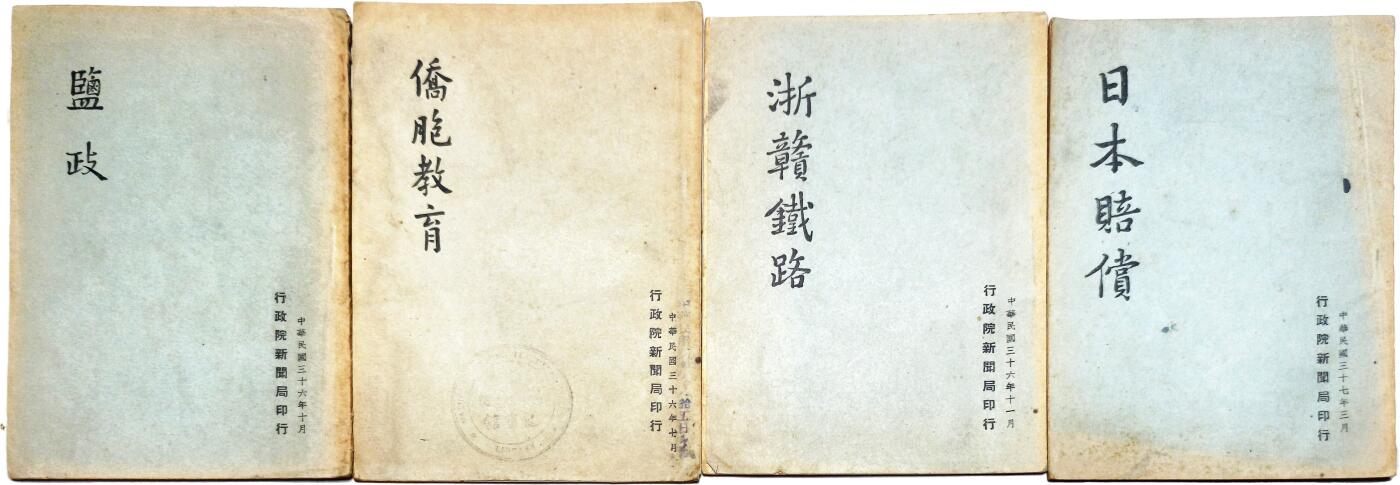 鹽政
中華民國三十六年十月
行政院新聞局印行
僑胞教育
中華民國三十六年七月
行政院新聞局印行
浙贛鐵路
中華民國三十六年十一月
行政院新聞局印行
日本賠償
中華民國三十七年三月
行政院新聞局印行